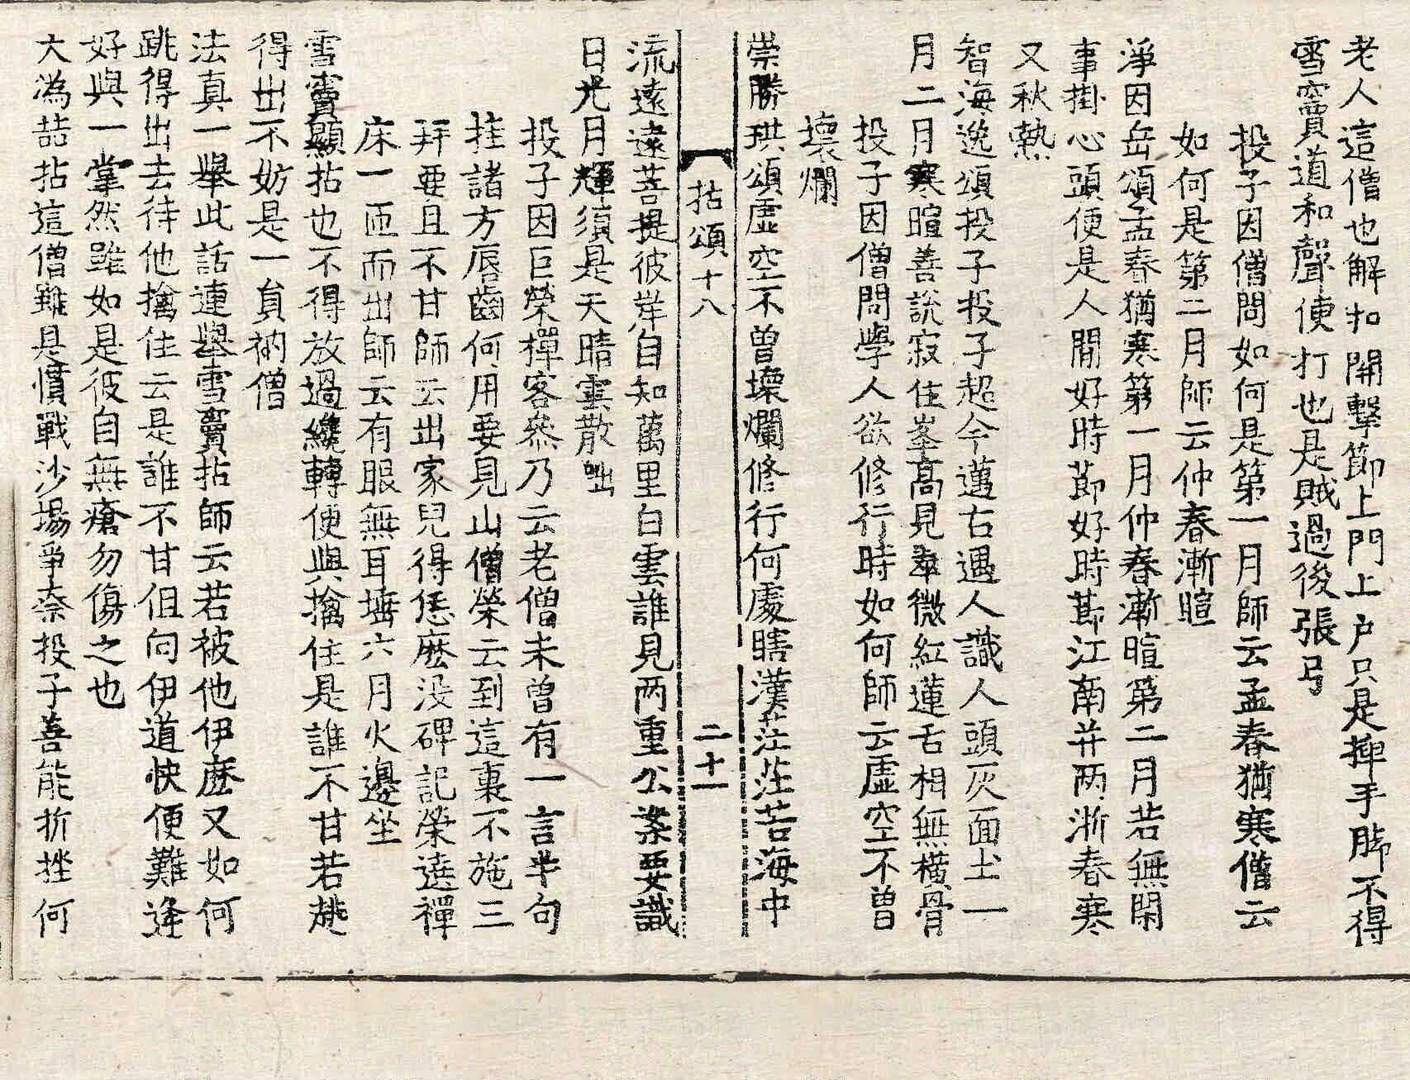 老人這僧也解扣關擊節上門上户只是揮手脚不得
雪竇道和聲便打也是賊過後張弓
投子因僧問如何是第一月師云孟春猶寒僧云
如何是第二月師云仲春漸暄
淨因岳頌孟春猶寒第一月仲春漸暄第二月若無閑
事掛心頭便是人間好時節好時莭江南并两浙春寒
又秋熱
智海逸頌投子投子超今邁古遇人識人頭灰面土一
月二月寒暄善說寂住峯高見本微紅蓮舌相無橫骨
投子因僧問學人欲修行時如何師云虛空不曾
壞爛
崇勝珙頌虛空不曾壞爛修行何處瞎漢茫茫苦海中
拈頌十八
二十一
流遠遠菩提彼岸自知萬里白雲誰見两重公案要識
日光月輝須是天晴雲散咄
投子因巨榮禪客叅乃云老僧未曾有一言半句
挂諸方唇齒何用要見山僧榮云到這裏不施三
拜要且不甘師云出家兒得恁麽没碑記榮遶禪
床一匝而出師云有眼無耳埵六月火邊坐
雪竇顯拈也不得放過纔轉便與擒住是誰不甘若趒
得出不妨是一員衲僧
法真一舉此話連舉雪竇拈師云若被他伊麽又如何
跳得出去待他擒住云是誰不甘但向伊道快便難逢
好與一掌然雖如是彼自無瘡勿傷之也
大溈喆拈這僧雖是慣戰沙場爭柰投子善能折挫何